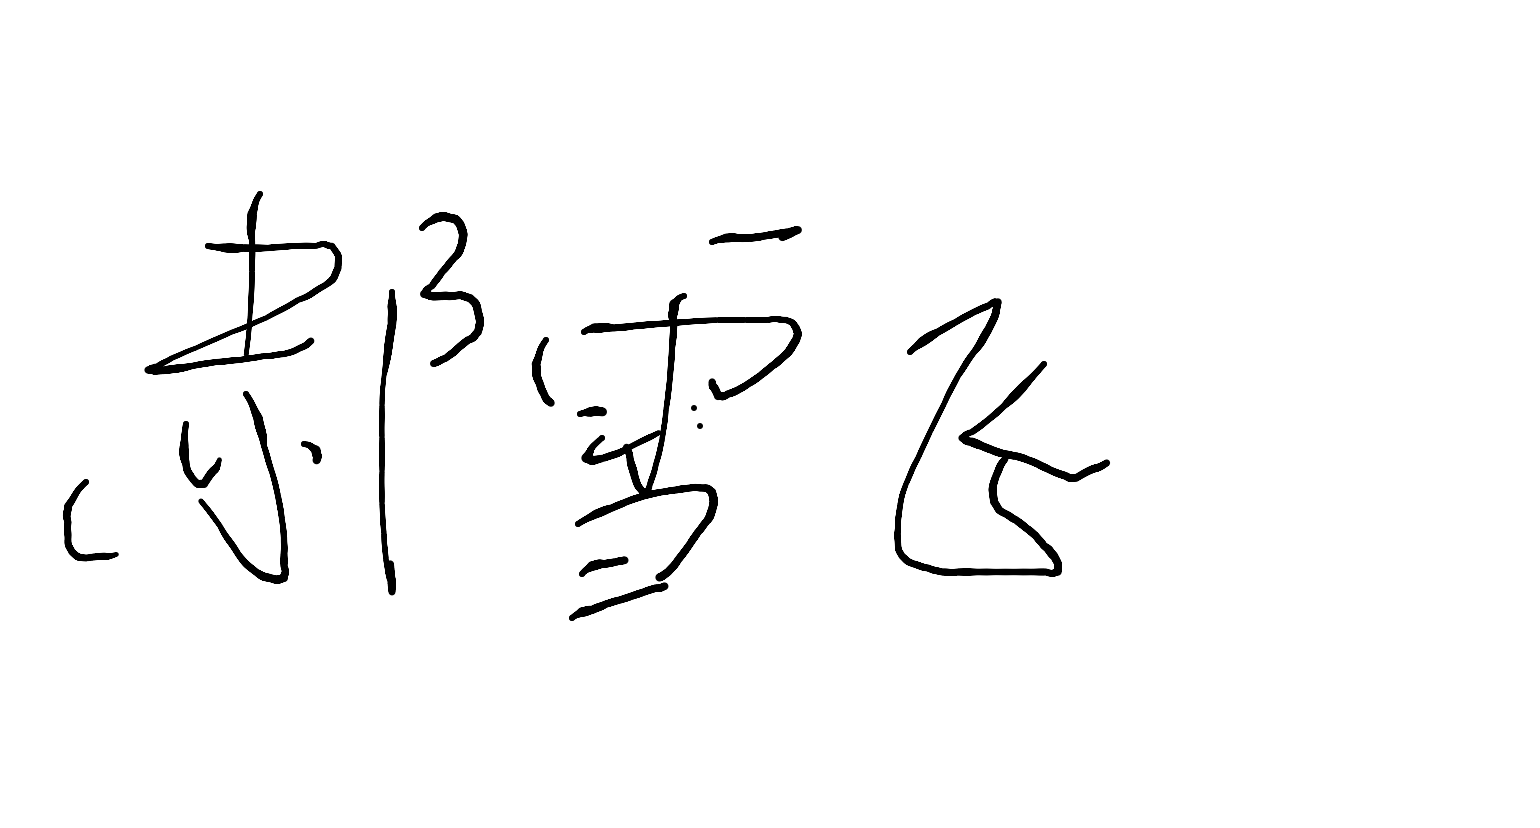 郝雪飞